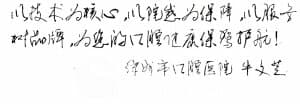 以技术为核心,以院感为保障,以服务
树品牌,为您的口腔健康保驾护航!
市口腔医院 牛文芝